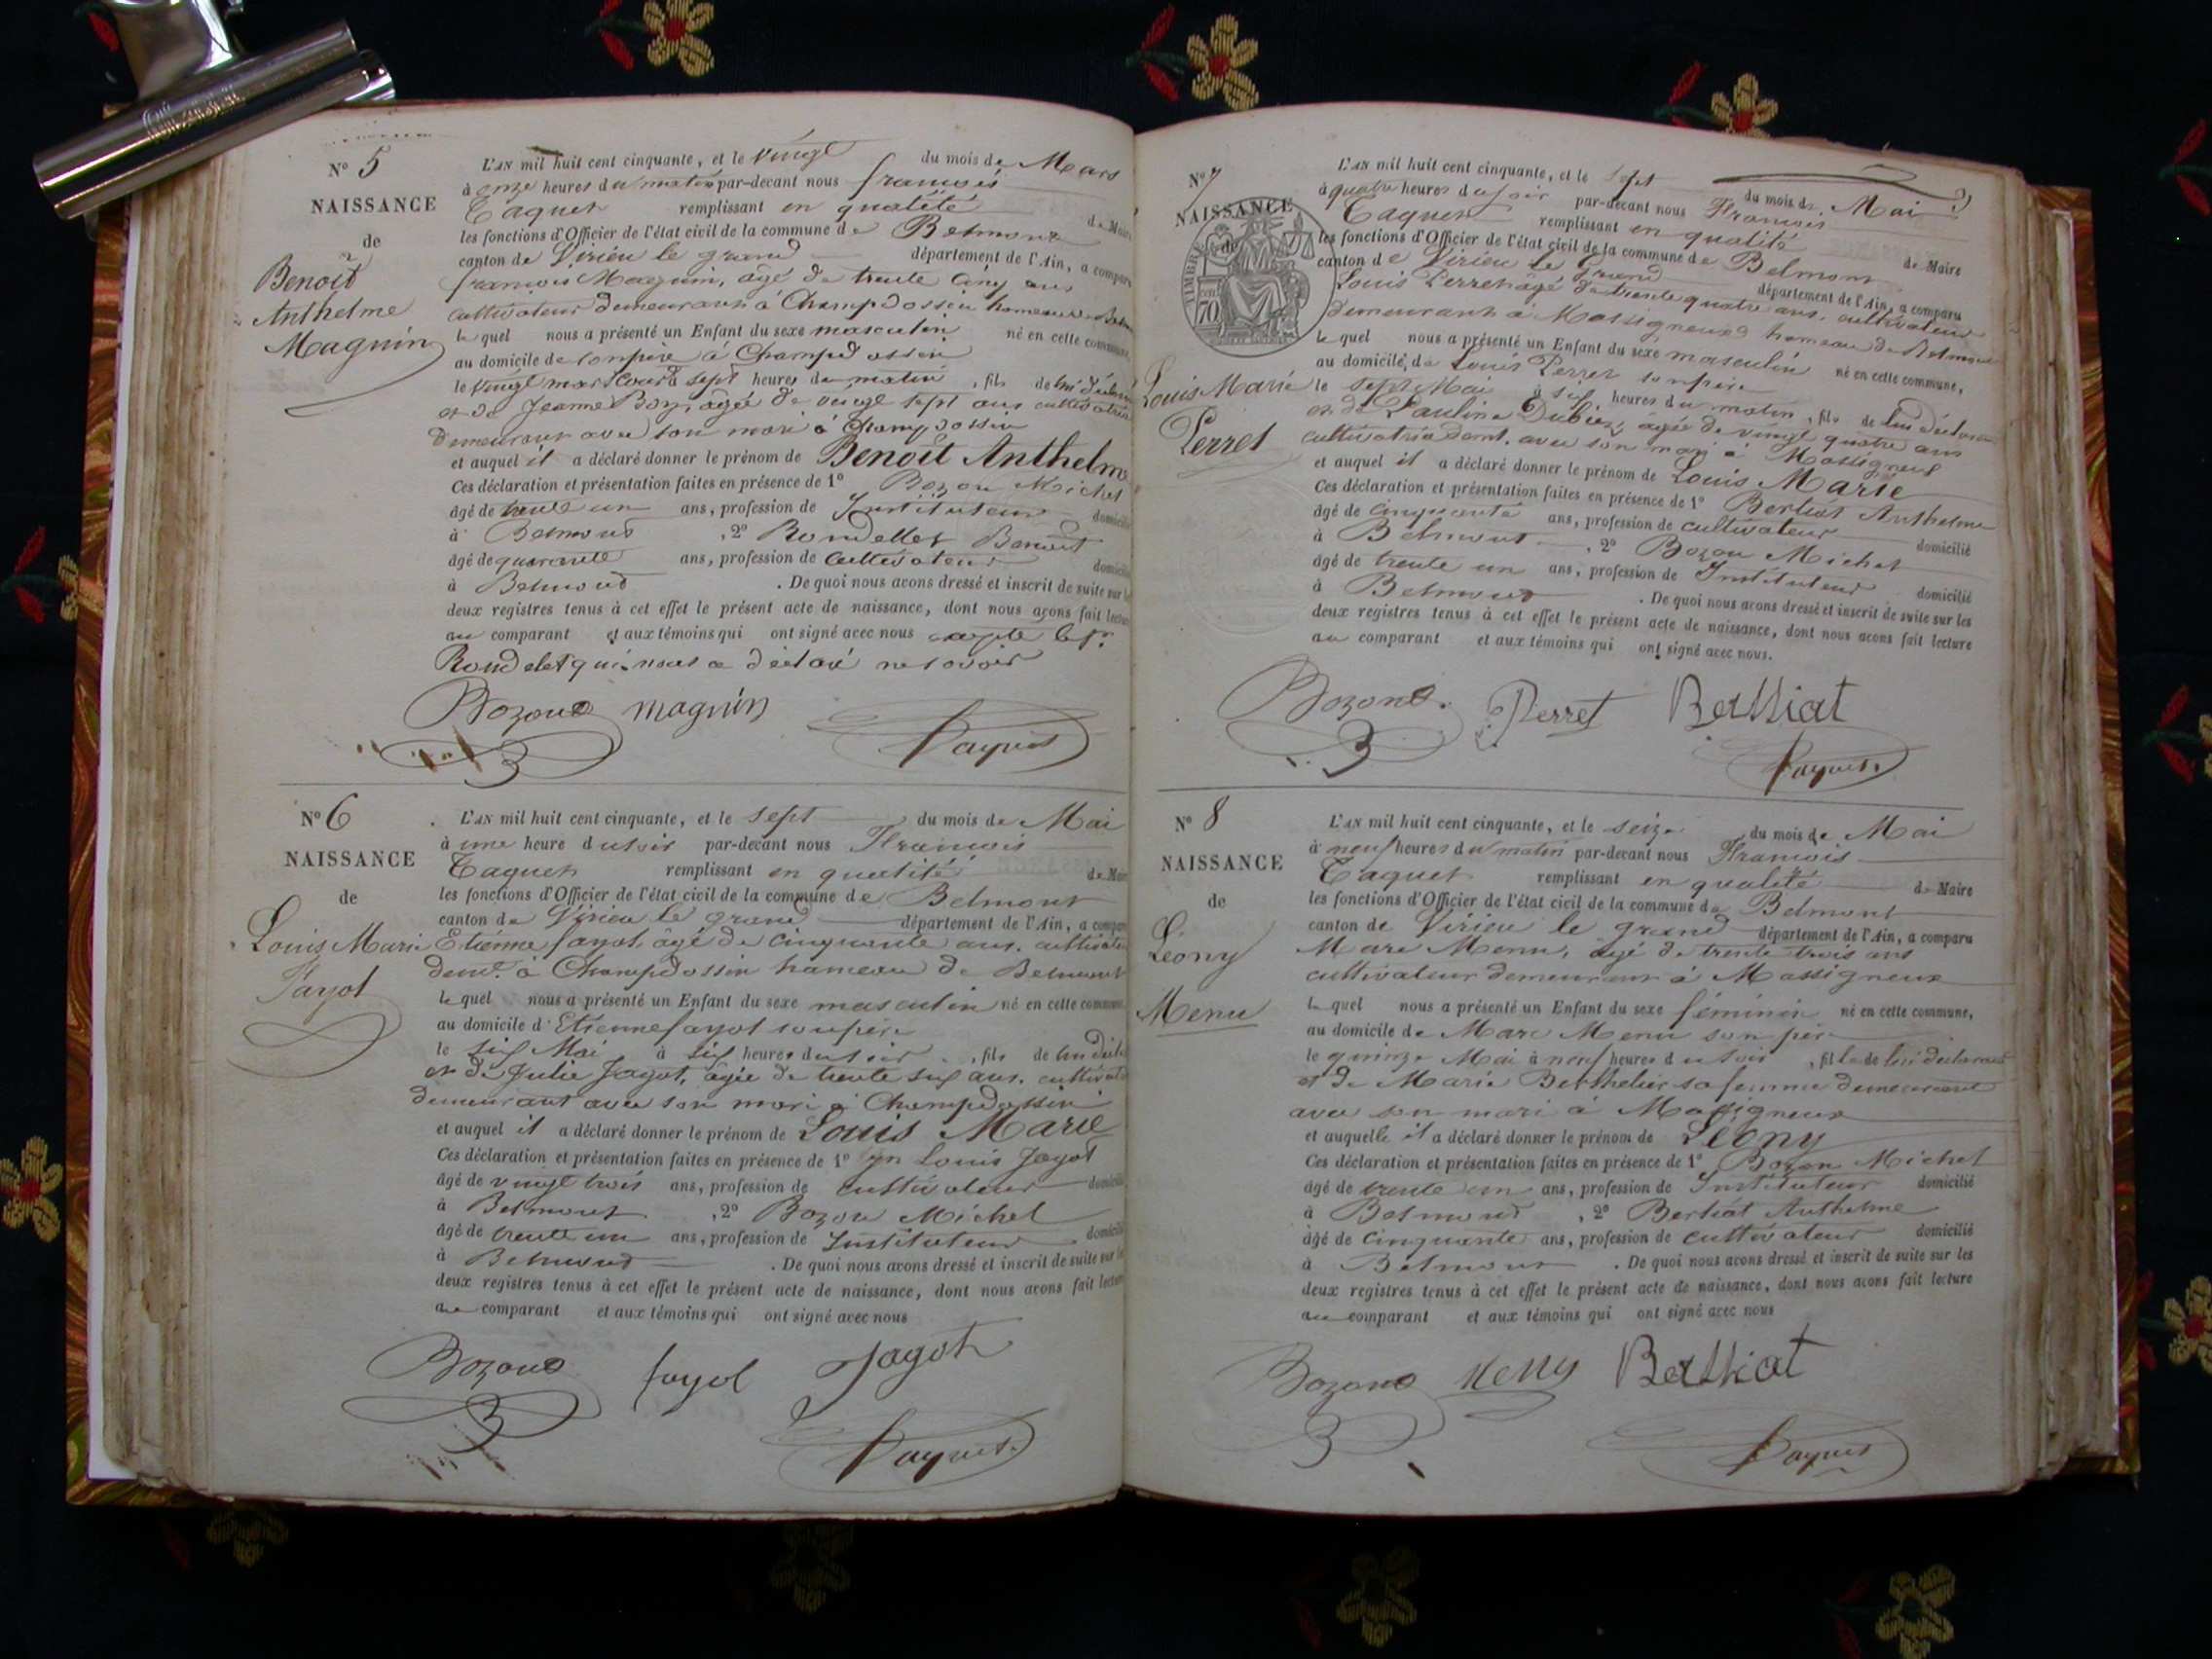 N° 5
NAISSANCE
de
Benoit
Anthelme
Maguin
L'AN mil huit cent cinquante, et le vingt du mois de Mars
à onze heures du matin par-devant nous françois
Taquet remplissant en qualité de Maire
les fonctions d'Officier de l'état civil de la commune de Belmont
canton de Virieu le grand département de l'Ain, a comparu
françois Maguin, âgé de trente cinq ans
cultivateur demeurant à Champdossin hameau de
le quel nous a présenté un Enfant du sexe masculin né en cette commune,
au domicile de son père à Champdossin
le vingt mars courant à sept heures du matin, fils de lui
et de Jeanne Boz, âgée de vingt sept ans cultivatrice
demeurant avec son mari à Champdossin
et auquel il a déclaré donner le prénom de Benoît Anthelme
Ces déclaration et présentation faites en présence de 1° Bozon Michel
âgé de trente un ans, profession de Instituteur domicilié
à Belmont, 2° Rondellet Benoit
âgé de quarante ans, profession de cultivateur domicilié
à Belmont. De quoi nous avons dressé et inscrit de suite sur les
deux registres tenus à cet effet le présent acte de naissance, dont nous avons fait lecture
au comparant et aux témoins qui ont signé avec nous excepté le Sr.
Rondelet qui nous a déclaré ne savoir
Bozond maguin
Taquet
N° 6
NAISSANCE
de
Louis Marie
Fayol
L'AN mil huit cent cinquante, et le sept du mois de Mai
à une heure du soir par-devant nous François
Taquet remplissant en qualité de Maire
les fonctions d'Officier de l'état civil de la commune de Belmont
canton de Virieu le grand département de l'Ain, a comparu
Etienne fayol, âgé de cinquante ans, cultivateur
demt. à Champdossin hameau de Belmont
le quel nous a présenté un Enfant du sexe masculin né en cette commune,
au domicile d'Etienne fayol son père
le six Mai à six heures du soir, fils de lui
et de Julie Jagot, âgée de trente six ans, cultivatrice
demeurant avec son mari à Champdossin
et auquel il a déclaré donner le prénom de Louis Marie
Ces déclaration et présentation faites en présence de 1° Louis Jagot
âgé de vingt trois ans, profession de cultivateur domicilié
à Belmont, 2° Bozon Michel
âgé de trente un ans, profession de Instituteur domicilié
à Belmont. De quoi nous avons dressé et inscrit de suite sur les
deux registres tenus à cet effet le présent acte de naissance, dont nous avons fait lecture
au comparant et aux témoins qui ont signé avec nous
Bozond fayol Jagot
Taquet
N° 7
NAISSANCE
de
TIMBRE
70
Louis Marie
Perret
L'AN mil huit cent cinquante, et le sept du mois de Mai
à quatre heures du soir par-devant nous François
Taquet remplissant en qualité de Maire
les fonctions d'Officier de l'état civil de la commune de Belmont
canton de Virieu le grand département de l'Ain, a comparu
Louis Perret âgé de trente quatre ans, cultivateur
demeurant à Massigneux hameau de Belmont
le quel nous a présenté un Enfant du sexe masculin né en cette commune,
au domicile de Louis Perret son père
le sept Mai à six heures du matin, fils de lui déclarant
et de Pauline Dubiez, âgée de vingt quatre ans
cultivatrice demt. avec son mari à Massigneux
et auquel il a déclaré donner le prénom de Louis Marie
Ces déclaration et présentation faites en présence de 1° Berliat Anthelme
âgé de cinquante ans, profession de cultivateur domicilié
à Belmont, 2° Bozon Michel
âgé de trente un ans, profession de Instituteur domicilié
à Belmont. De quoi nous avons dressé et inscrit de suite sur les
deux registres tenus à cet effet le présent acte de naissance, dont nous avons fait lecture
au comparant et aux témoins qui ont signé avec nous.
Bozond. Perret Berliat
Taquet.
N° 8
NAISSANCE
de
Léony
Menu
L'AN mil huit cent cinquante, et le seize du mois de Mai
à neuf heures du matin par-devant nous François
Taquet remplissant en qualité de Maire
les fonctions d'Officier de l'état civil de la commune de Belmont
canton de Virieu le grand département de l'Ain, a comparu
Marc Menu, âgé de trente trois ans
cultivateur demeurant à Massigneux
le quel nous a présenté un Enfant du sexe féminin né en cette commune,
au domicile de Marc Menu son père
le quinze Mai à neuf heures du soir, fille de lui déclarant
et de Marie Berthelier sa femme demeurant
avec son mari à Massigneux
et auquelle il a déclaré donner le prénom de Léony
Ces déclaration et présentation faites en présence de 1° Bozon Michel
âgé de trente un ans, profession de Instituteur domicilié
à Belmont, 2° Berliat Anthelme
âgé de cinquante ans, profession de cultivateur domicilié
à Belmont. De quoi nous avons dressé et inscrit de suite sur les
deux registres tenus à cet effet le présent acte de naissance, dont nous avons fait lecture
au comparant et aux témoins qui ont signé avec nous
Bozond Menu Berliat
Taquet